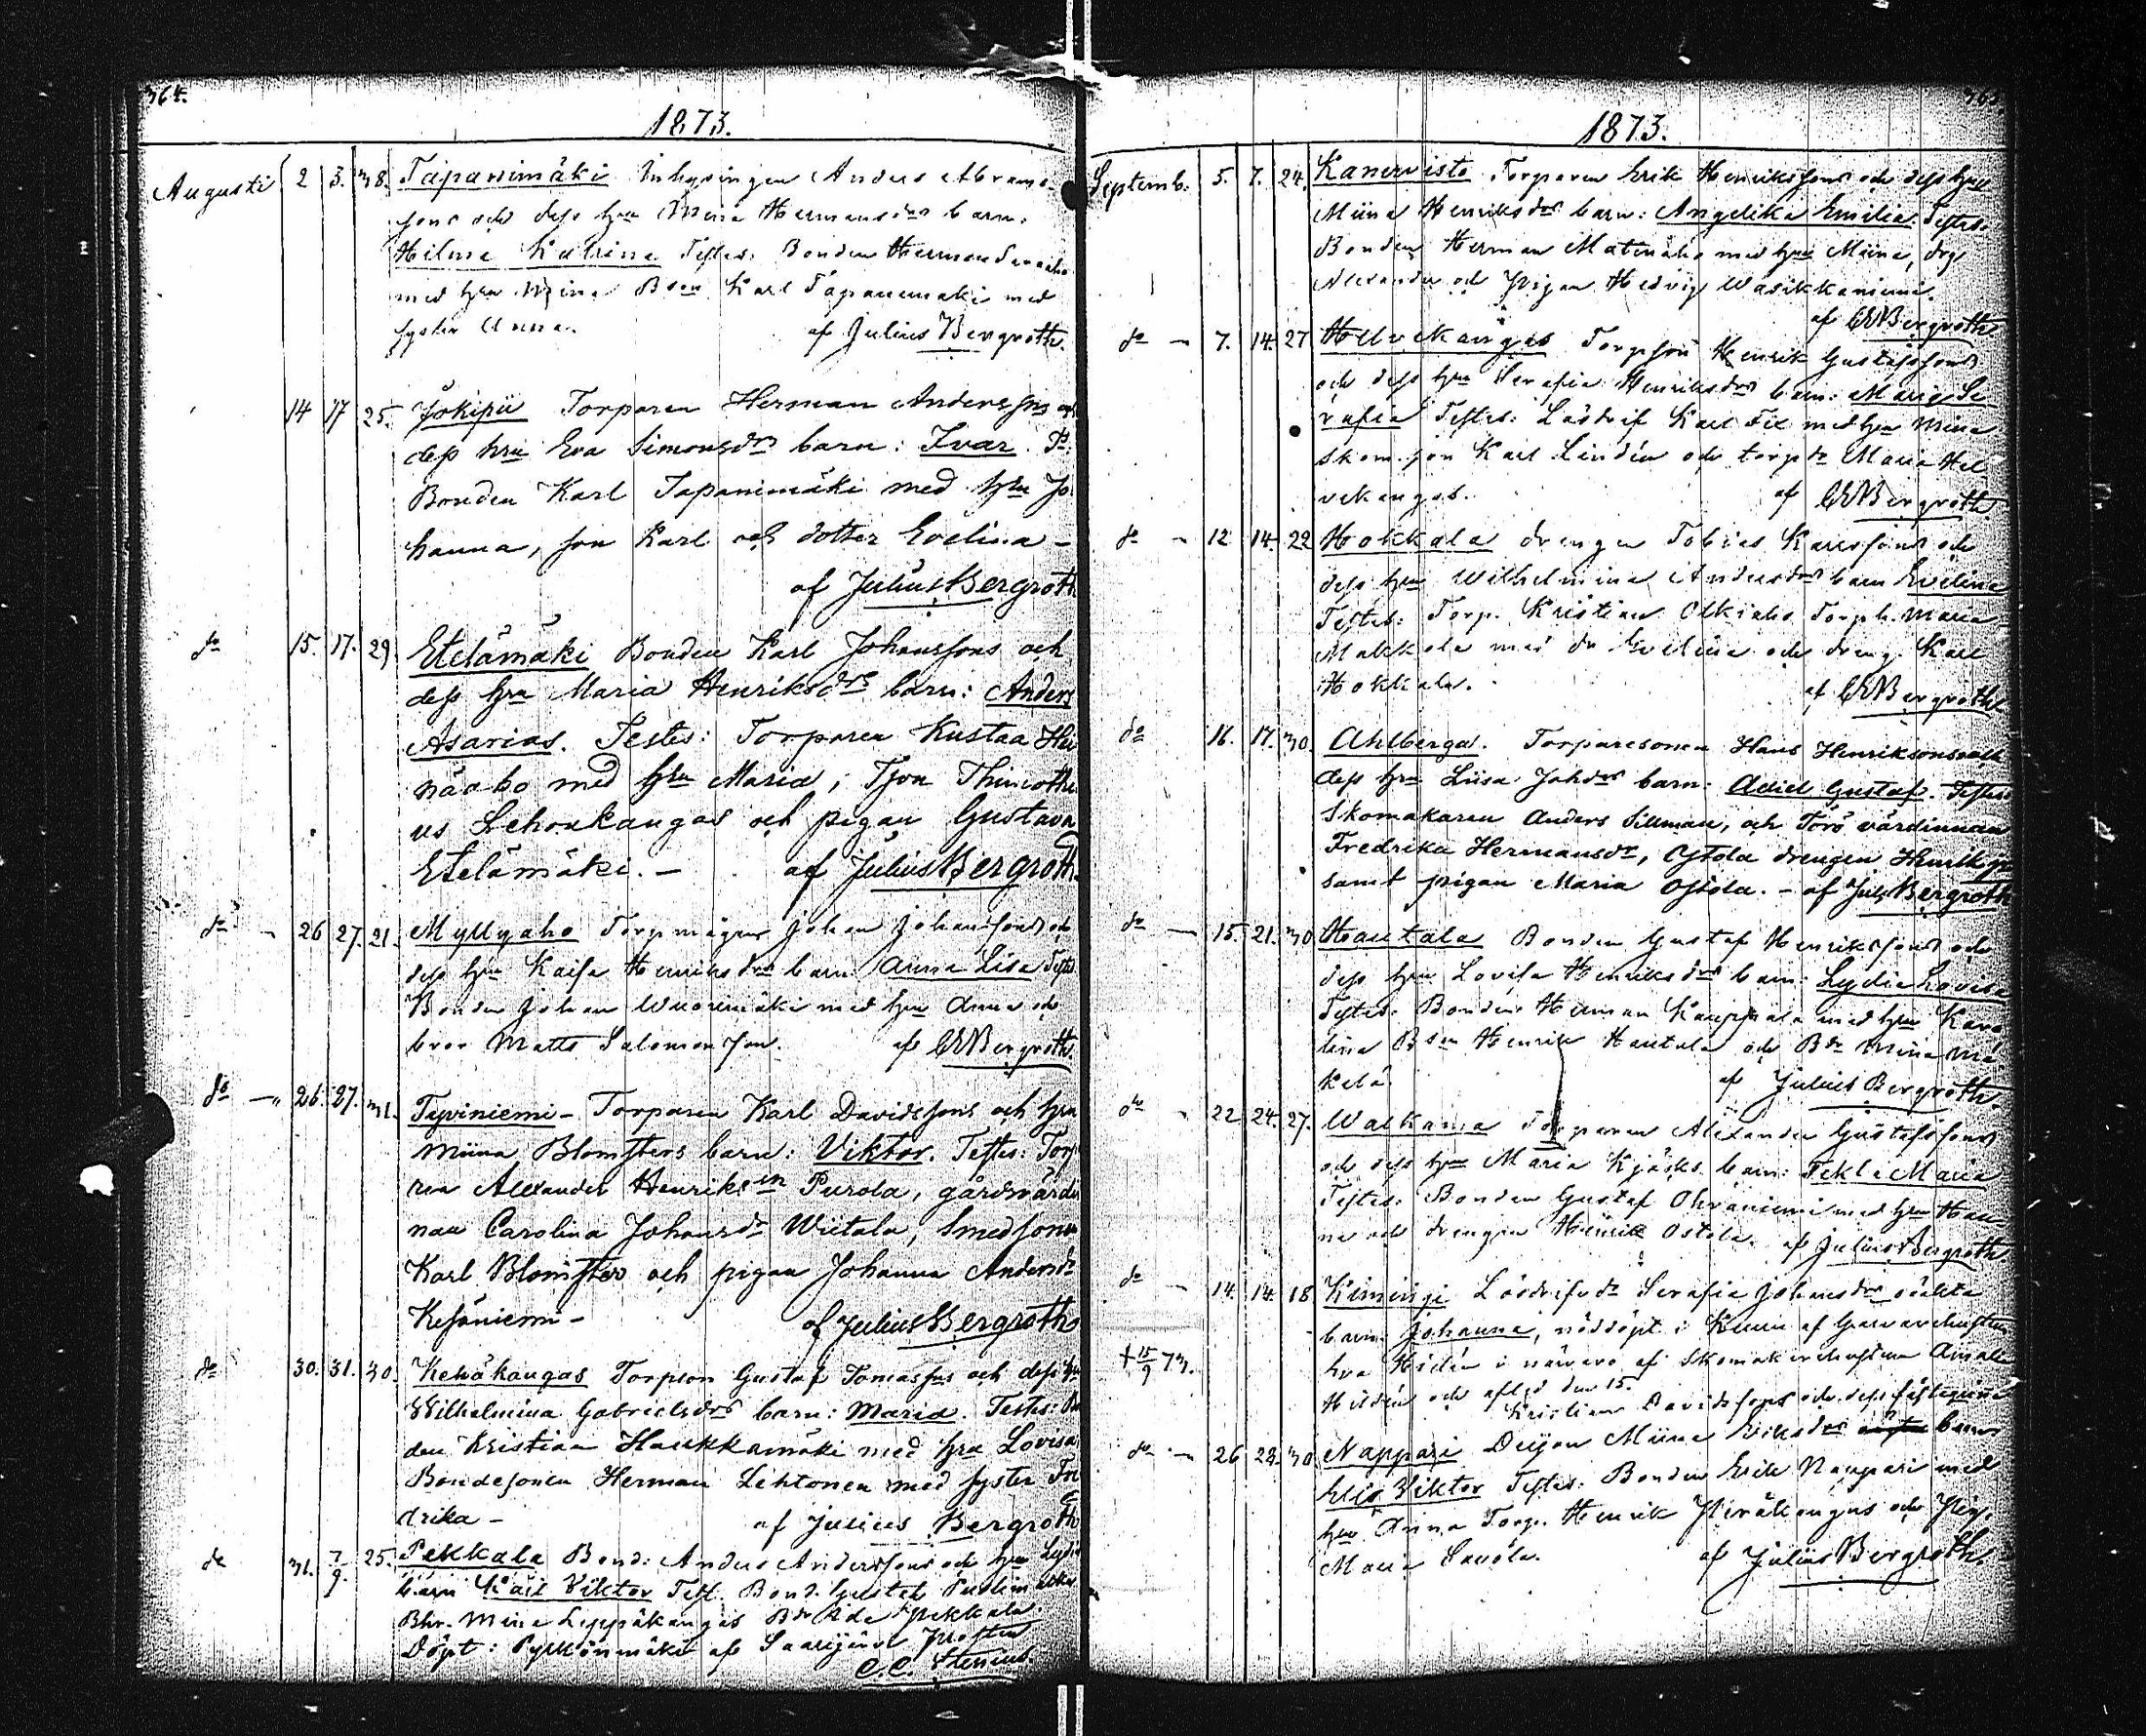 364.
1873.
Augusti 2 3. 38. Tapanimäki Inhysingen Anders Abrams-
sons och dess hru Mina Hermansdrs barn:
Hilma Katrina Testes: Bonden Herman
med hru Mina Bson Karl Tapanimäki med
syster Anna. af Julius Bergroth.
14 17 25. Jokipii Torparen Herman Anderssons och
dess hru Eva Simonsdrs barn: Ivar. Ts:
Bonden Karl Tapanimäki med hru Jo
hanna, son Karl och dotter Evelina –
af Julius Bergroth
do 15. 17. 29. Etelämäki Bonden Karl Johanssons och
dess hru Maria Henriksdrs barn: Anders
Asarias. Testes: Torparen Kustaa Hei
näaho med hru Maria; Tjon Thimothe
us Lehonkangas och pigan Gustava
Etelämäki. – af Julius Bergroth.
do – 26 27. 21. Myllyaho Torpmågen Johan Johanssons och
dess hru Kaisa Henriksdrs barn Anna Lisa Testes
Bonden Johan Wuorenmäki med hru Anna och
bror Matts Salomonsson. af CEBergroth.
do – 26. 27. 31. Tyviniemi – Torparen Karl Davidssons och hru
Miina Blomsters barn: Viktor. Testes: Torp
ren Alexander Henrikssn Purola, gårdsvärdin
nan Carolina Johansdr Wiitala, Smedsonen
Karl Blomster och pigan Johanna Andersdr
Kesäniemi – af Julius Bergroth
do 30. 31. 30. Kehäkangas Torpson Gustaf Tomassons och dess hru
Wilhelmina Gabrielsdrs barn: Maria. Testes: Bon
den Kristian Haukkamäki med hru Lovisa
Bondesonen Herman Lehtonen med syster Fre
drika – af Julius Bergroth
do 31. 7/9. 25. Pekkala Bond: Anders Anderssons och hru Lydia
barn Karl Viktor Test. Bond. Gustaf
Bhr. Mina Leppäkangas Bdr Ida Pekkala.
Döpt: Pyllkönmäki af Saarijärvi Prosten
C. C. Stenius
1873.
Septemb: 5. 7. 24. Kanervisto Torparen Erik Henrikssons och dess hru
Miina Henriksdrs barn: Angelika Emilia. Testes:
Bonden Herman Matinaho med hru Miina, drg
Alexander och pigan Hedvig Wasikkaniemi.
af CEBergroth.
do – 7. 14. 27 Helvekangas Torpson Henrik Gustafssons
och dess hru Serafia Henriksdrs barn: Maria Se
rafia Testes: Lösdrif Karl Fix med hru Mina
Skom. son Karl Lindén och torpdr Maria Hel
vekangas. af CEBergroth.
do – 12 14. 22 Hokkala drengen Tobias Karlssons och
dess hru Wilhelmina Andersdrs barn Evelina
Testes: Torp. Kristian Olkiaho Torph. Maria
Makkola med dr Evelina och dreng. Karl
Hokkala. af CEBergroth
do 16. 17. 30. Ahlberga. Torparesonen Hans Henriksonsoch
dess hru Liisa Johdrs barn: Adiel Gustaf. Testes
Skomakaren Anders Sillman, och Törö värdinnan
Fredrika Hermansdr, Ojtola drengen Henrik
samt pigan Maria Ojtola. – af Juls Bergroth
do – 15. 21. 30 Hautala Bonden Gustaf Henrikssons och
dess hru Lovisa Henriksdrs barn: Lydia Lovisa
Testes: Bonden Herman Kauppala med hru Karo
lina Bson Henrik Hautala och Bdr Mina Mä
kelä. af Julius Bergroth.
do – 22 24. 27. Walkama Torparen Alexander Gustafssons
och dess hru Maria Kjäcks barn: Tekla Maria
Testes: Bonden Gustaf Ohraniemi med hru Han
na och drengen Henrik Ostola. af Julius Bergroth.
do – 14. 14. 18 Kiminji Lösdrifvdr Serafia Johansdrs oäkta
barn: Johanna, nöddöpt i Kiimi af Garvarehustru
hva Hidén i närvaro af Skomakarehustrun Amalia
Hidén och aflgd den 15.
+ 15/9 73.
Kristian Davidssons och dess fästeqvinna
do – 26 28. 30 Nappari Deijan Miina Eriksdrs barn
Elis Viktor Testes: Bonden Erik Nappari med
hru Anna Torp. Henrik Peräkangas och Pig.
Maria Savola. af Julius Bergroth.